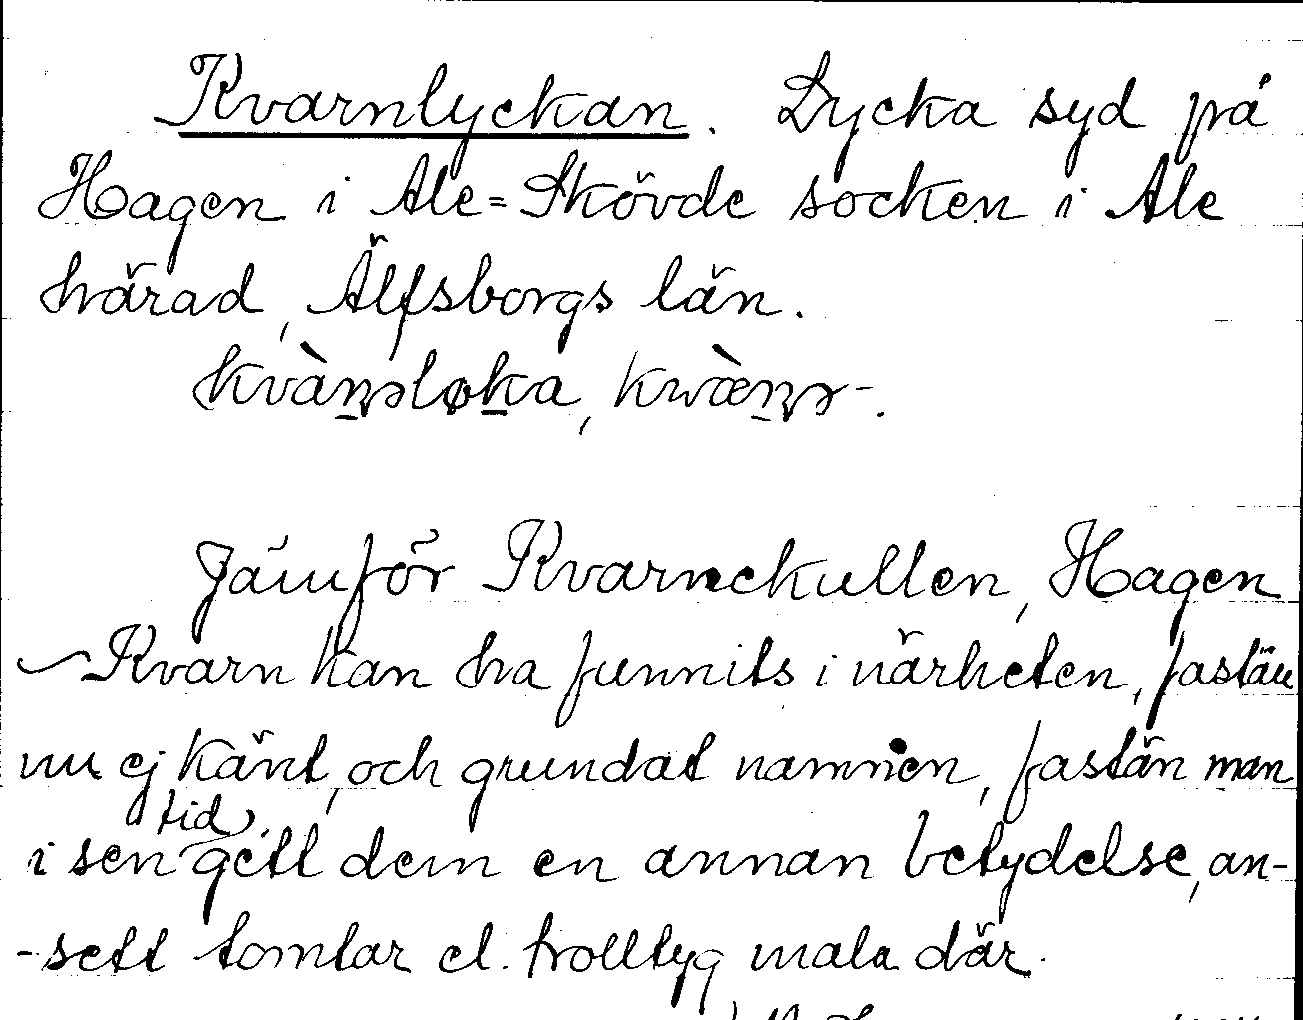 Kvarnlyckan. Lycka syd på
Hagen i Ale=Skövde socken i Ale
härad, Älfsborgs län.
Jämför Kvarnekullen, Hagen
Kvarn kan ha funnits i närheten, fastän
nu ej känt, och grundat namnen, fastän man
i sen tid gett dem en annan betydelse, an-
-sett tomtar el. trolltyg mala där.